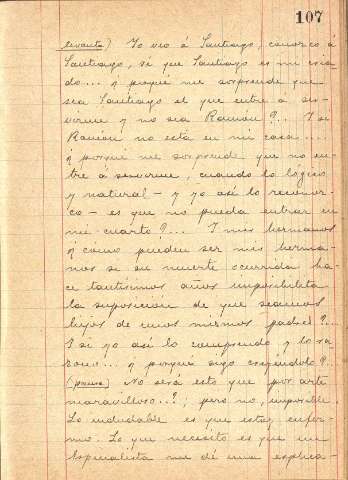 107
levanta) Yo veo á Santiago, conozco á
Santiago, sé que Santiago es mi cria
do... ¿y porqué me sorprende que
sea Santiago el que entre á ser-
virme y no sea Ramón?... Y si
Ramón no está en mi casa...
¿y porque me sorprende que no en-
tre á servirme, cuando lo lógico
y natural - y yo así lo reconoz-
co - es que no pueda entrar en
mi cuarto?... Y mis hermanos
¿y como pueden ser mis herma-
nos si su muerte ocurrida ha-
ce tantísimos años imposibilita
la suposición de que seamos
hijos de unos mismos padres?...
Y si yo así lo comprendo y lo ra
zono... ¿y porqué sigo creyéndolo?...
(pausa) No será esto que por arte
maravilloso...?; pero no, imposible.
Lo indudable es que estoy enfer-
mo. Lo que necesito es que un
especialista me dé una explica-